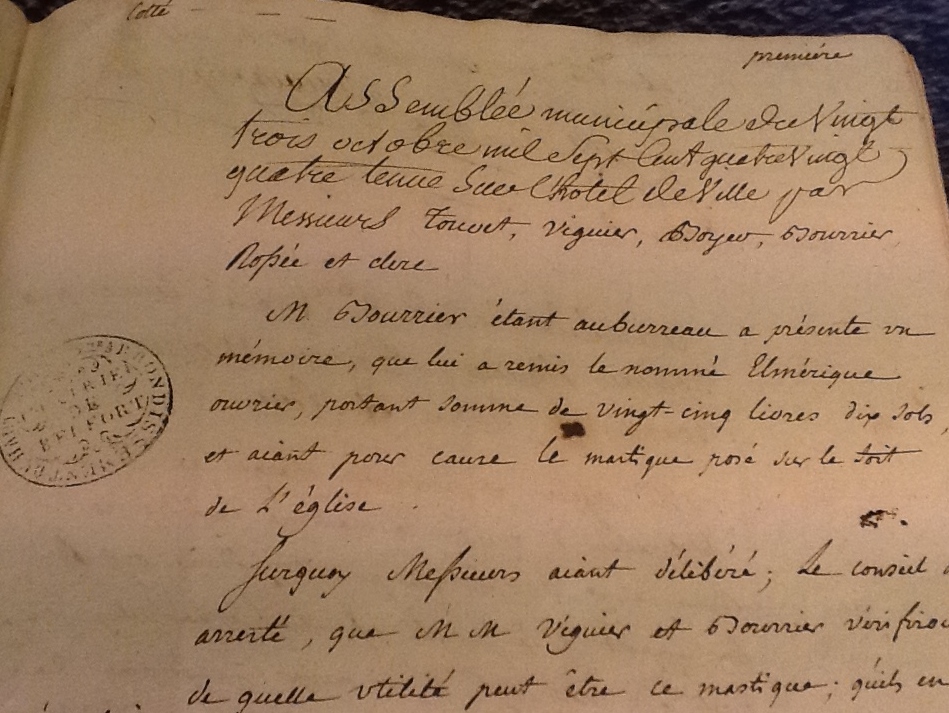 Cotté
première
Assemblée municipale du Vingt
trois octobre mil Sept Cent quatre Vingt
quatre tenue Sur l'hotel de Ville par
Messieurs Touvet, Viguier, Boyer, Bourrier
Rossée et clerc
M Bourrier étant au burreau a présente un
mémoire, que lui a remis le nommé Elmérique
ouvrier, portant somme de vingt-cinq livres dix sols,
et aiant pour cause le mastique posé sur le toit
de L'église
ARRONDISSEMENT DU HAUT
DE
BELFORT
surquoy Messieurs aiant délibéré; Le conseil
arresté, que M M Viguier et Bourrier vérifiro
de quelle utilité peut être ce mastique; qu'ils en